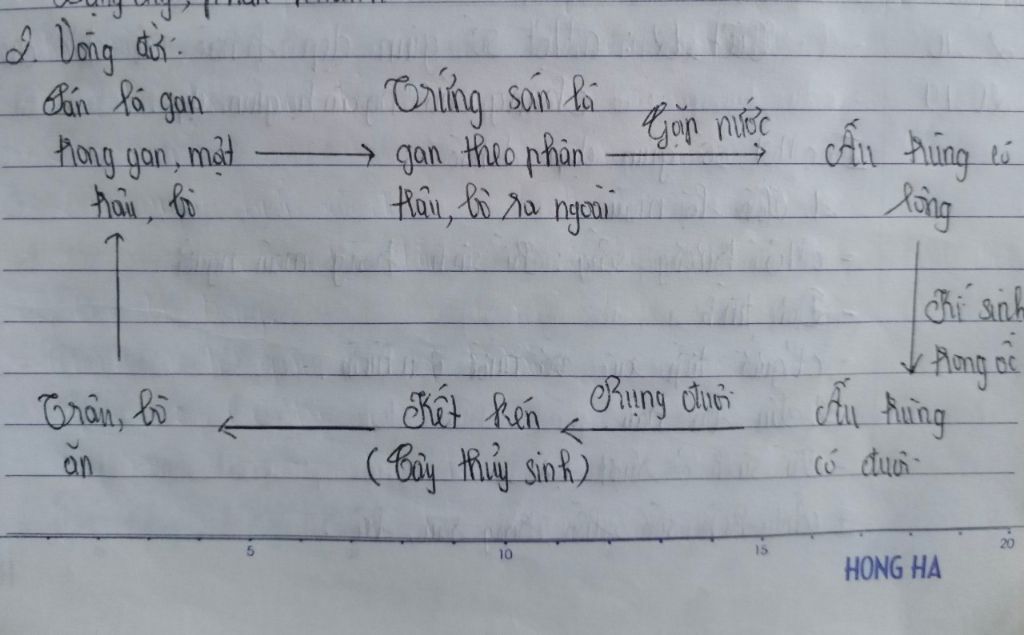 2. Vòng đời:
Sán lá gan
trong gan, mật
trâu, bò
Trứng sán lá
gan theo phân
trâu, bò ra ngoài
Gặp nước
Ấu trùng có
lông
Kí sinh
trong ốc
Ấu trùng
có đuôi
Rụng đuôi
Kết kén
(Cây thủy sinh)
Trâu, bò
ăn
5 10 15 20
HONG HA